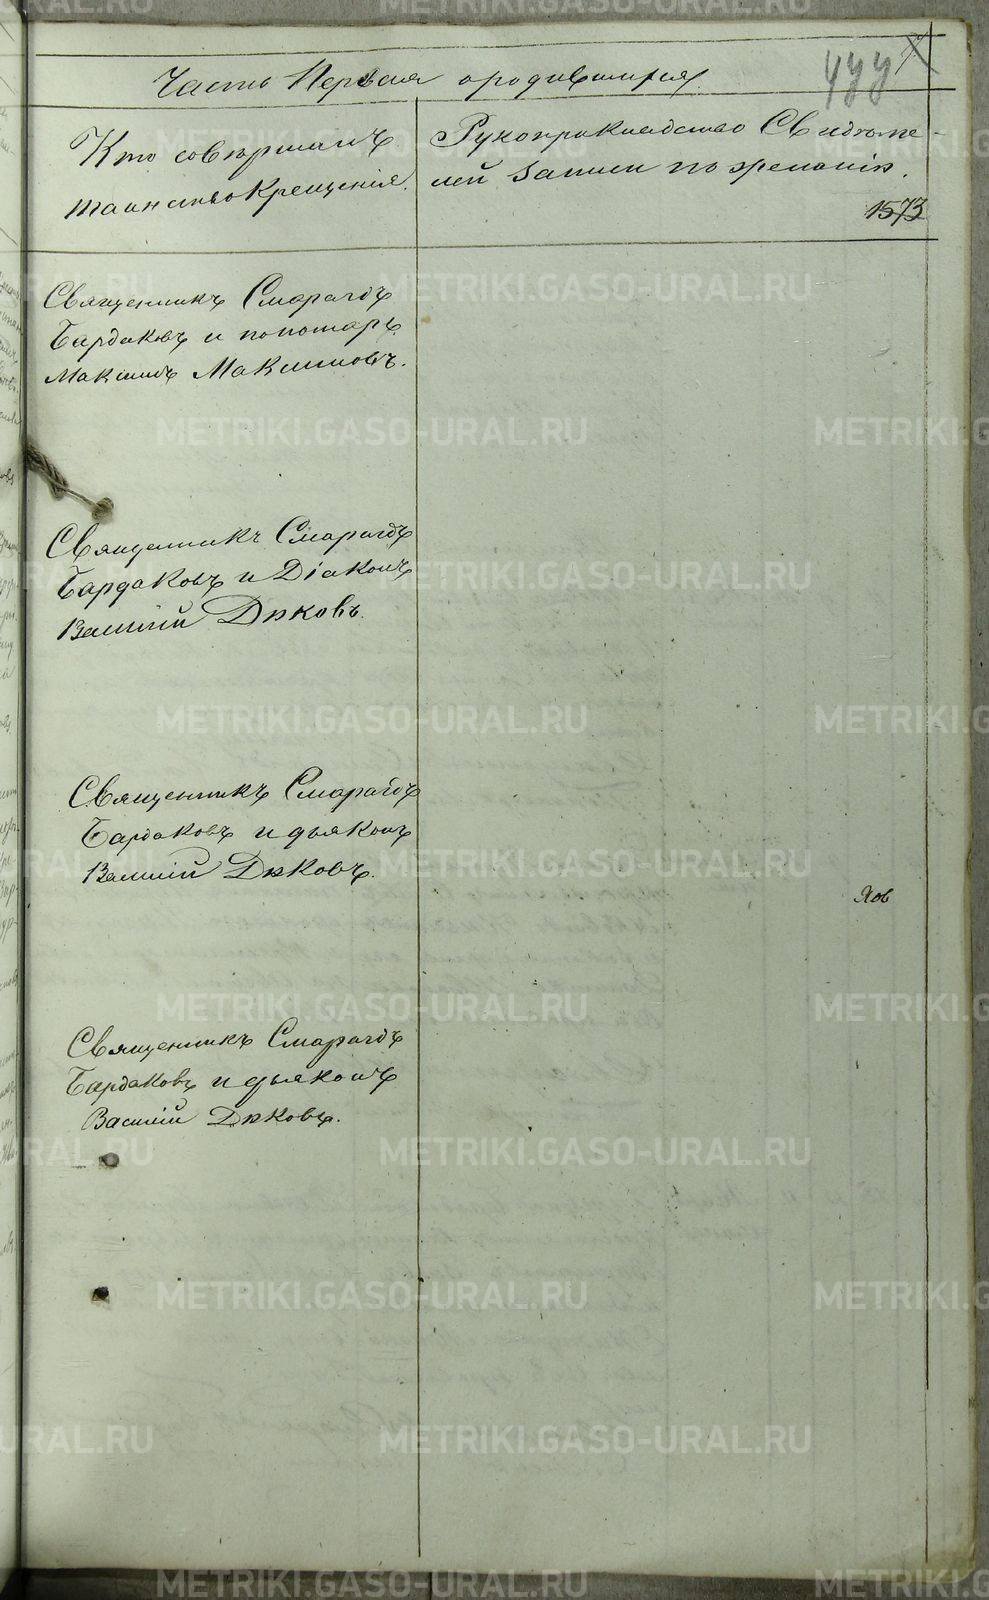 Часть Первая о родившихся.
Кто совершалъ
таинство Крещенія.
Рукоприкладство Свидѣте-
лей записи по желанію.
1573
Священникъ Смарагдъ
Бардаковъ и пономарь
Максимъ Максимовъ.
Священникъ Смарагдъ
Бардаковъ и Діаконъ
Василій Дяковъ.
Священникъ Смарагдъ
Бардаковъ и дьяконъ
Василій Дяковъ.
Яов
Священникъ Смарагдъ
Бардаковъ и дьяконъ
Василій Дяковъ.
METRIKI.GASO-URAL.RU